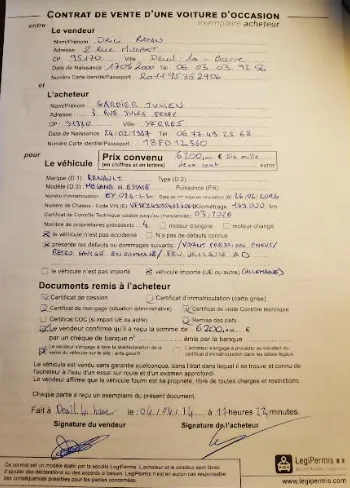 CONTRAT DE VENTE D'UNE VOITURE D'OCCASION
entre exemplaire acheteur
Le vendeur
Nom/Prénom : RAYAN
Adresse : 2 Rue
CP : 95170 Ville : Deuil la - Barre
Date de Naissance 17/04/2000 Tél 06 03 03 92 56
Numéro Carte Identité/Passeport
et
L'acheteur
Nom/Prénom : GARDIER JULIEN
Adresse : 3 RUE JULES FERRY
CP : 91330 Ville : YERRES
Date de Naissance : 24/02/1987 Tél 06 77 49 25 68
Numéro Carte Identité/Passeport
pour
Le véhicule
Prix convenu 6200 € Six mille
(en chiffres et en lettres) deux cent euros
Marque (D.1) RENAULT Type (D.2)
Modèle (D.3) MEGANE Puissance (P.6)
Numéro d'immatriculation Date de 1ère mise en circulation
Numéro de Chassis - Code VIN (E) Kilométrage
Certificat de Contrôle Technique valable jusqu'au (mois/année) : 03/2026
Nombre de propriétaires précédents : 4 moteur d'origine moteur changé
le véhicule n'est pas accidenté N'a pas de défauts connus
présente les défauts ou dommages suivants : VOYANT PRESSION PNEUS/
RETRO GAUCHE ENDOMMAGÉ/ FEU
le véhicule n'est pas importé véhicule importé (UE ou autre) (ALLEMAGNE)
Documents remis à l'acheteur
Certificat de cession Certificat d'immatriculation (carte grise)
Certificat de non-gage (situation administrative) Certificat de visite Contrôle technique
Certificat COC (si import UE ou autre) Remise des clefs
Le vendeur confirme qu'il a reçu la somme de 6200 €
par un chèque de banque n° émis par la banque
Le vendeur s'engage à faire la déclaration de la vente du véhicule sur le site : ants.gouv.fr
L'acheteur s'engage à procéder au transfert du certificat d'immatriculation dans les délais légaux.
Le véhicule est vendu sans garantie quelconque, dans l'état dans lequel il se trouve et connu de
l'acheteur à l'issu d'un essai sur route et d'un examen approfondi.
Le vendeur affirme que le véhicule fourni est sa propriété, libre de toutes charges et restrictions.
Chaque partie a reçu un exemplaire du présent document.
Fait à Deuil la barre le : à 17 heures minutes.
Signature du vendeur Signature de l'acheteur
Ce contrat est un modèle édité par la société LegiPermis. L'acheteur et le vendeur sont libres
d'ajouter des déclarations ou des accords si besoin. LegiPermis n'est en aucun cas responsable
des conséquences possibles pour les parties concernées.
LegiPermis
www.legipermis.com